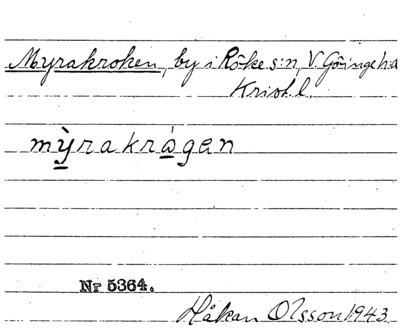 Myrakroken, by i Röke s:n, V. Göinge h:a
Krist. l.
mỳ̱rakrá̱gen
Nr 5364.
Håkan Olsson 1943